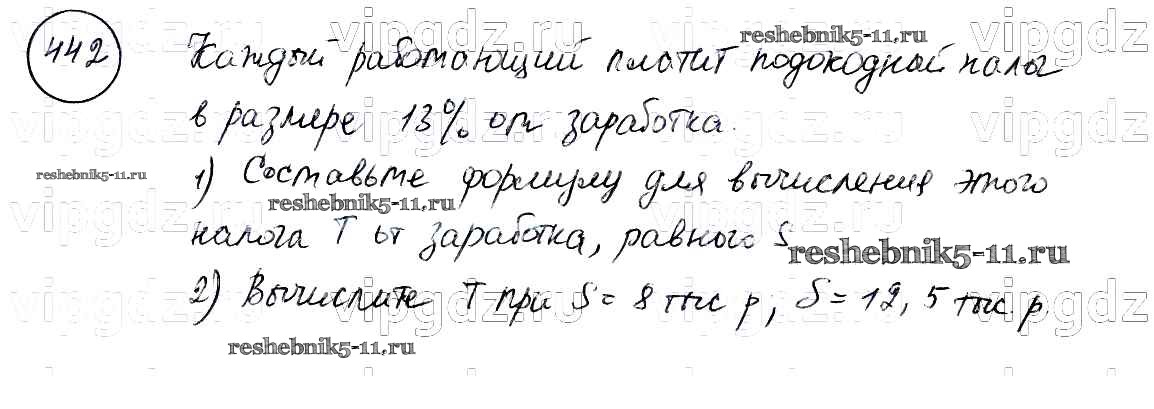 442 Каждый работающий платит подоходный налог
reshebnik5-11.ru
в размере 13% от заработка.
reshebnik5-11.ru
1) Составьте формулу для вычисления этого
reshebnik5-11.ru
налога T от заработка, равного S
reshebnik5-11.ru
2) Вычислите T при S = 8 тыс р, S = 12,5 тыс. р.
reshebnik5-11.ru
vipgdz.ru